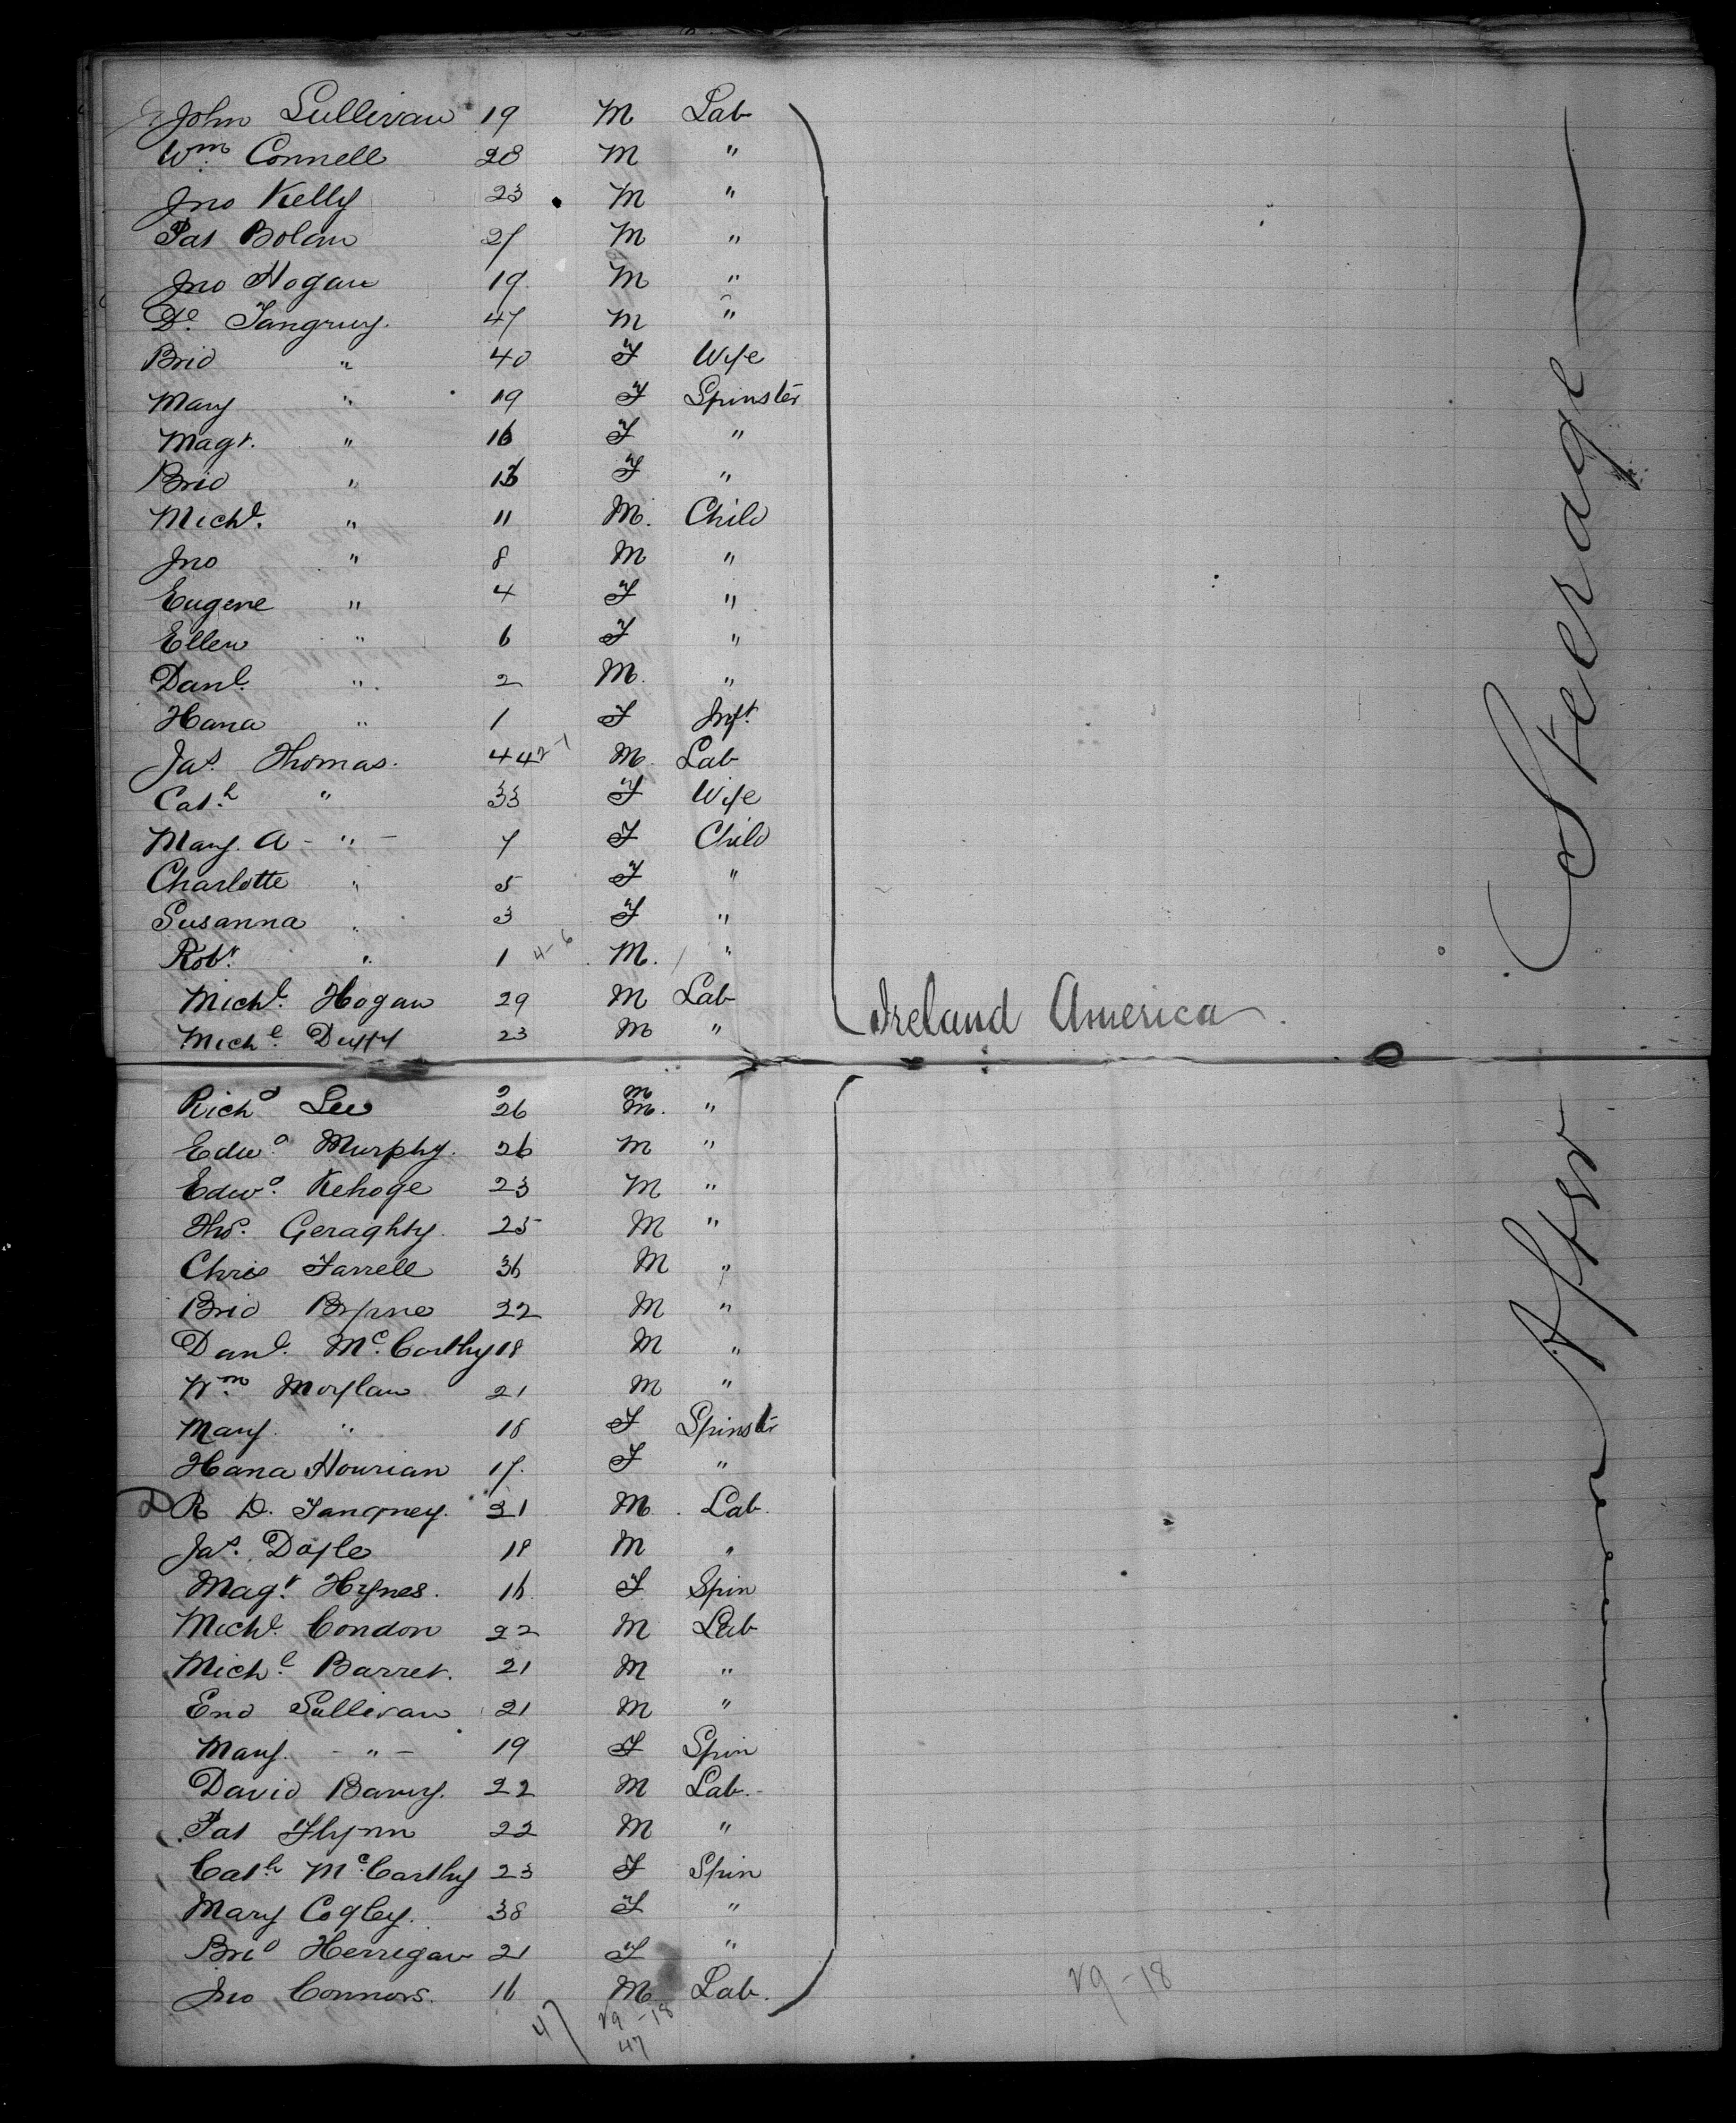 John Sullivan 19 M Lab
Wm Connell 28 M "
Jno Kelly 23 M "
Pat Bolan 27 M "
Jno Hogan 19 M "
47 M "
Brid " 40 F Wife
Mary " 19 F Spinster
Magt. " 16 F "
Brid " F "
Michl. " 11 M. Child
Jno " 8 M "
Eugene " 4 F "
Ellen " 6 F "
Danl. " 2 M. "
Hana " 1 F Inft.
Jas. Thomas. 44 M. Lab
Cath. " 33 F Wife
Mary. A - " - 7 F Child
Charlotte " 5 F "
Susanna " 3 F "
Robt. " 1 4-6 M. "
Michl. Hogan 29 M Lab
Michl Duffy 23 M "
Ireland America
Steerage
Richd Lee 26 M. "
Edwd. Murphy. 26 M "
Edwd. Kehoge 23 M "
Thos. Geraghty. 25 M "
Chris Farrell 36 M "
Brid Byrne 22 M "
Danl. McCarthy 18 M "
Wm Moylan 21 M "
Mary. " 18 F Spinstr
Hana Hourian 17. F "
R D. Tangney. 21 M. Lab.
Jas. Doyle 18 M "
Magt. Hynes. 16 F Spin
Michl. Condon 22 M Lab
Michl. Barret. 21 M "
End Sullivan 21 M "
Mary. - " - 19 F Spin
David Barry. 22 M Lab.
Pat Flynn 22 M "
Cath McCarthy 23 F Spin
Mary Cogley. 38 F "
Brid Herrigan 21 F "
Jno Connors. 16 M Lab.
47 29-18
47
29-18